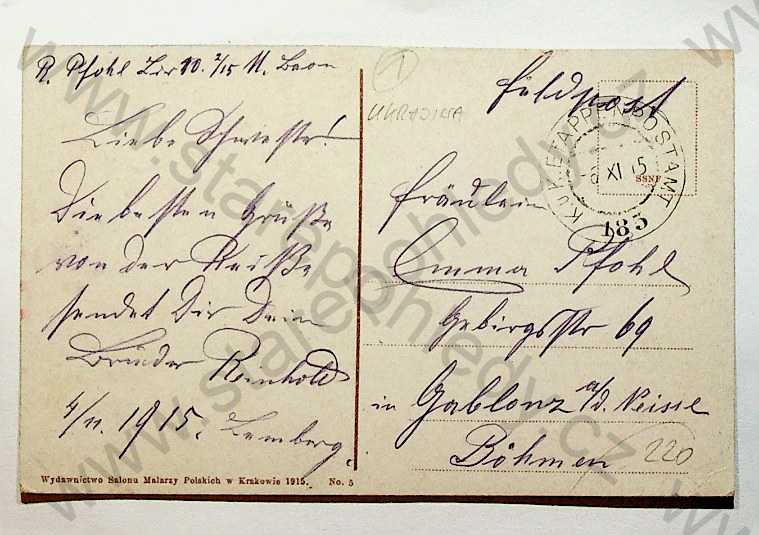 R. Pfohl Lir 10. 2/15 M. Baon
Liebe Schwester!
Die besten Grüße
von der Reise
sendet Dir Dein
Bruder Reinhold
4/11. 1915. Lemberg.
Wydawnictwo Salonu Malarzy Polskich w Krakowie 1915. No. 5
1
UKRAJINA
Feldpost
K.u.K. ETAPPENPOSTAMT
XI 15
183
SSNF
Fräulein
Emma Pfohl
Gebirgsstr 69
in Gablonz a/d. Neisse
Böhmen
220
www.starepohledy.cz